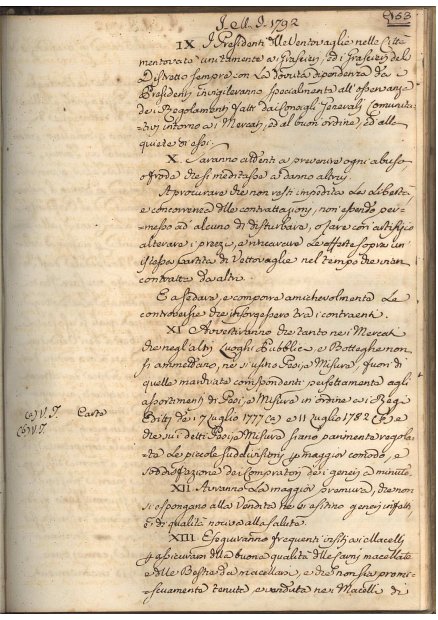 I. M. I. 1792
153
IX. I Presidenti alle Vettovaglie nelle Città
mentovate unitamente a' Grascieri, ed i Grascieri del
Distretto sempre con la dovuta dipendenza da'
Presidenti invigileranno specialmente all'osservanza
dei Regolamenti fatti dai Consigli Generali Comunita-
-tivi intorno a i Mercati, ed al buon ordine, ed alla
quiete di essi.
X. Saranno attenti a prevenire ogni abuso
o froda che si meditasse a danno altrui.
A procurare che non resti impedita la libertà
e concorrenza delle contrattazioni, non essendo per-
-messo ad alcuno di disturbare, o fare con artifizio
alterare i prezzi, e rincarare le offerte sopra un'
istessa partita di Vettovaglie nel tempo che si
contratta da altri.
E a sedare, e comporre amichevolmente le
controversie che insorgessero tra i contraenti.
XI. Avvertiranno che tanto nei Mercati
che negli altri Luoghi Pubblici, e Botteghe non
si ammettano, nè si usino Pesi, e Misure, fuori di
quelle marcate corrispondenti perfettamente agli
assortimenti di Pesi, e Misure in ordine ai Regj
Editti de' 17 Luglio 1777 (a) e 11 Luglio 1782 (b) e
che sui detti Pesi, e Misure siano parimente regola-
te le piccole suddivisioni p. maggior comodo, e
soddisfazione dei Compratori dei generi a minuto.
(a) V. I. Carte
(b) V. I.
XII. Avranno la maggior premura, che non
si espongano alla Vendita nè si esitino generi infetti,
e di qualità nociva alla salute.
XIII. Eseguiranno frequenti visite ai Macelli
p. assicurarsi della buona qualità delle carni macellate
e delle Bestie da macellarsi, e che non sia promi-
-scuamente tenuta e venduta nei Macelli di